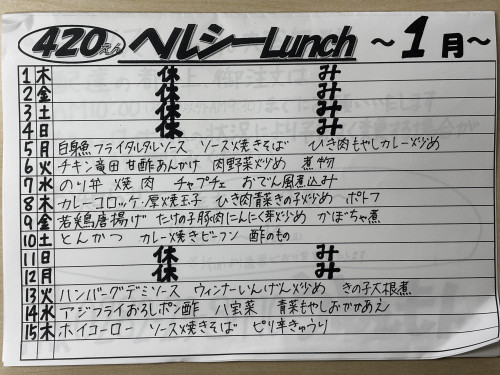 420えん ヘルシーLunch ～1月～
1 木 休 み
2 金 休 み
3 土 休 み
4 日 休 み
5 月 白身魚フライタルタルソース ソース焼きそば ひき肉もやしカレー炒め
6 火 チキン竜田 甘酢あんかけ 肉野菜炒め 煮物
7 水 のり弁 焼肉 チャプチェ おでん風煮込み
8 木 カレーコロッケ・厚焼玉子 ひき肉青菜きの子炒め ポトフ
9 金 若鶏唐揚げ たけの子豚肉にんにく芽炒め かぼちゃ煮
10 土 とんかつ カレー焼きビーフン 酢のもの
11 日 休 み
12 月 休 み
13 火 ハンバーグデミソース ウィンナーいんげん炒め きの子大根煮
14 水 アジフライおろしポン酢 八宝菜 青菜もやしおかかあえ
15 木 ホイコーロー ソース焼きそば ピリ辛きゅうり